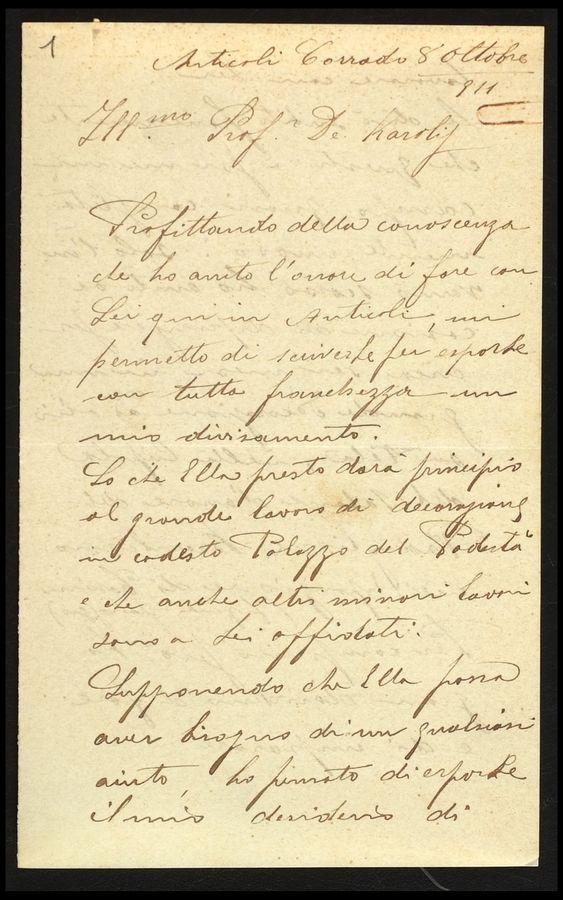 1
Anticoli Corrado 8 Ottobre
911
Ill.mo Prof.r De Karolis
Profittando della conoscenza
che ho avuto l'onore di fare con
Lei qui in Anticoli, mi
permetto di scriverle per esporle
con tutta franchezza un
mio divisamento.
So che Ella presto darà principio
al grande lavoro di decorazione
in codesto Palazzo del Podestà
e che anche altri minori lavori
sono a Lei affidati.
Supponendo che Ella possa
aver bisogno di un qualsiasi
aiuto, ho pensato di esporLe
il mio desiderio di